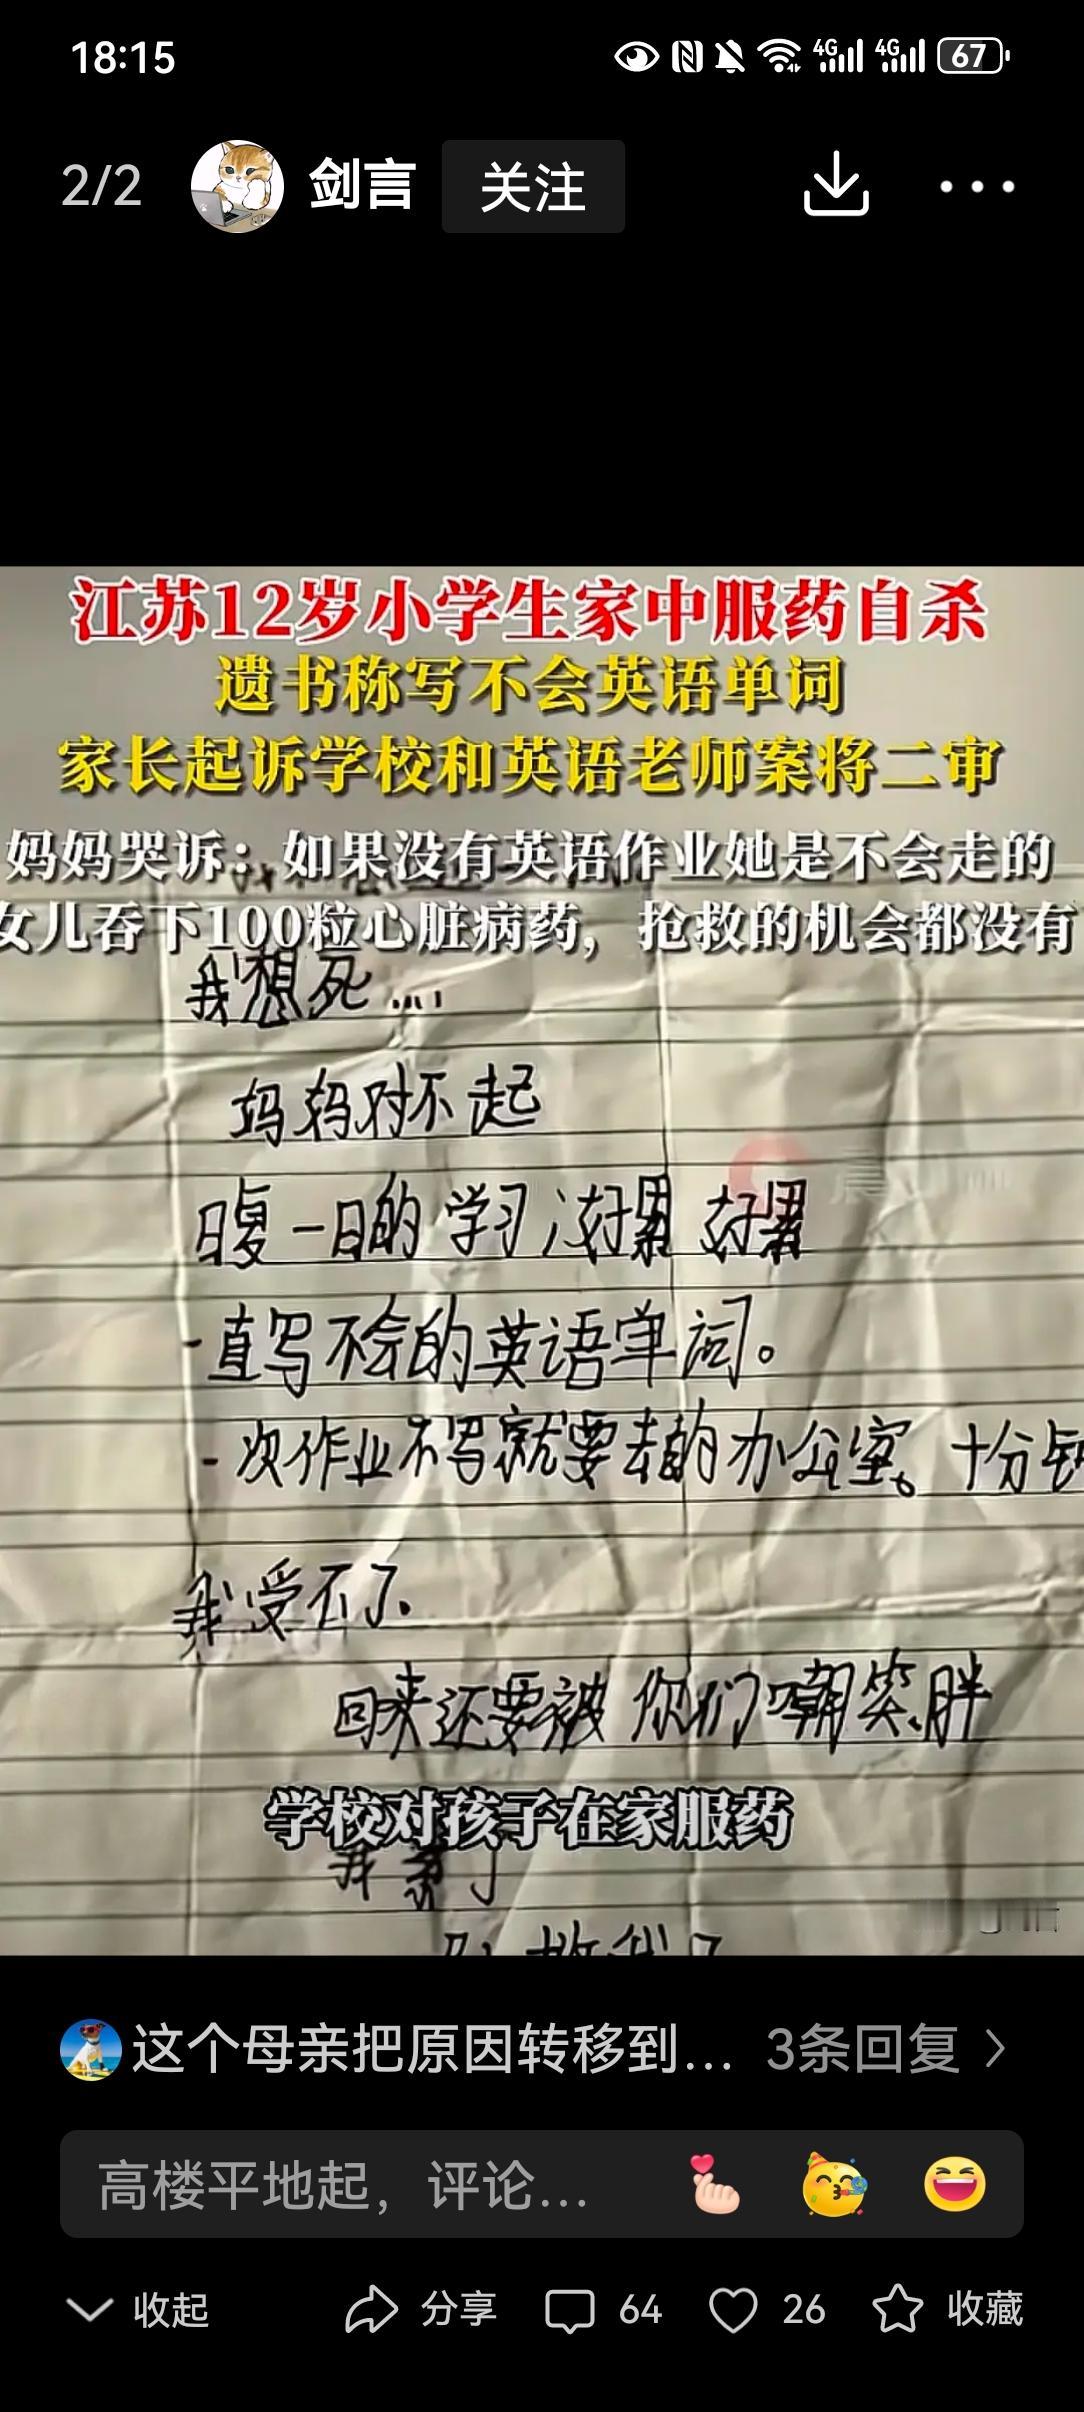 18:15
4G 4G 67
2/2 剑言 关注
江苏12岁小学生家中服药自杀
遗书称写不会英语单词
家长起诉学校和英语老师案将二审
妈妈哭诉：如果没有英语作业她是不会走的
女儿吞下100粒心脏病药，抢救的机会都没有
我想死....
妈妈对不起
日复一日的学习，好累 好累
一直写不会的英语单词。
一次作业不写就要去的办公室。十分钟
我受不了.
回来还要被你们嘲笑、胖
学校对孩子在家服药
我累了
这个母亲把原因转移到... 3条回复
高楼平地起，评论...
收起 分享 64 26 收藏